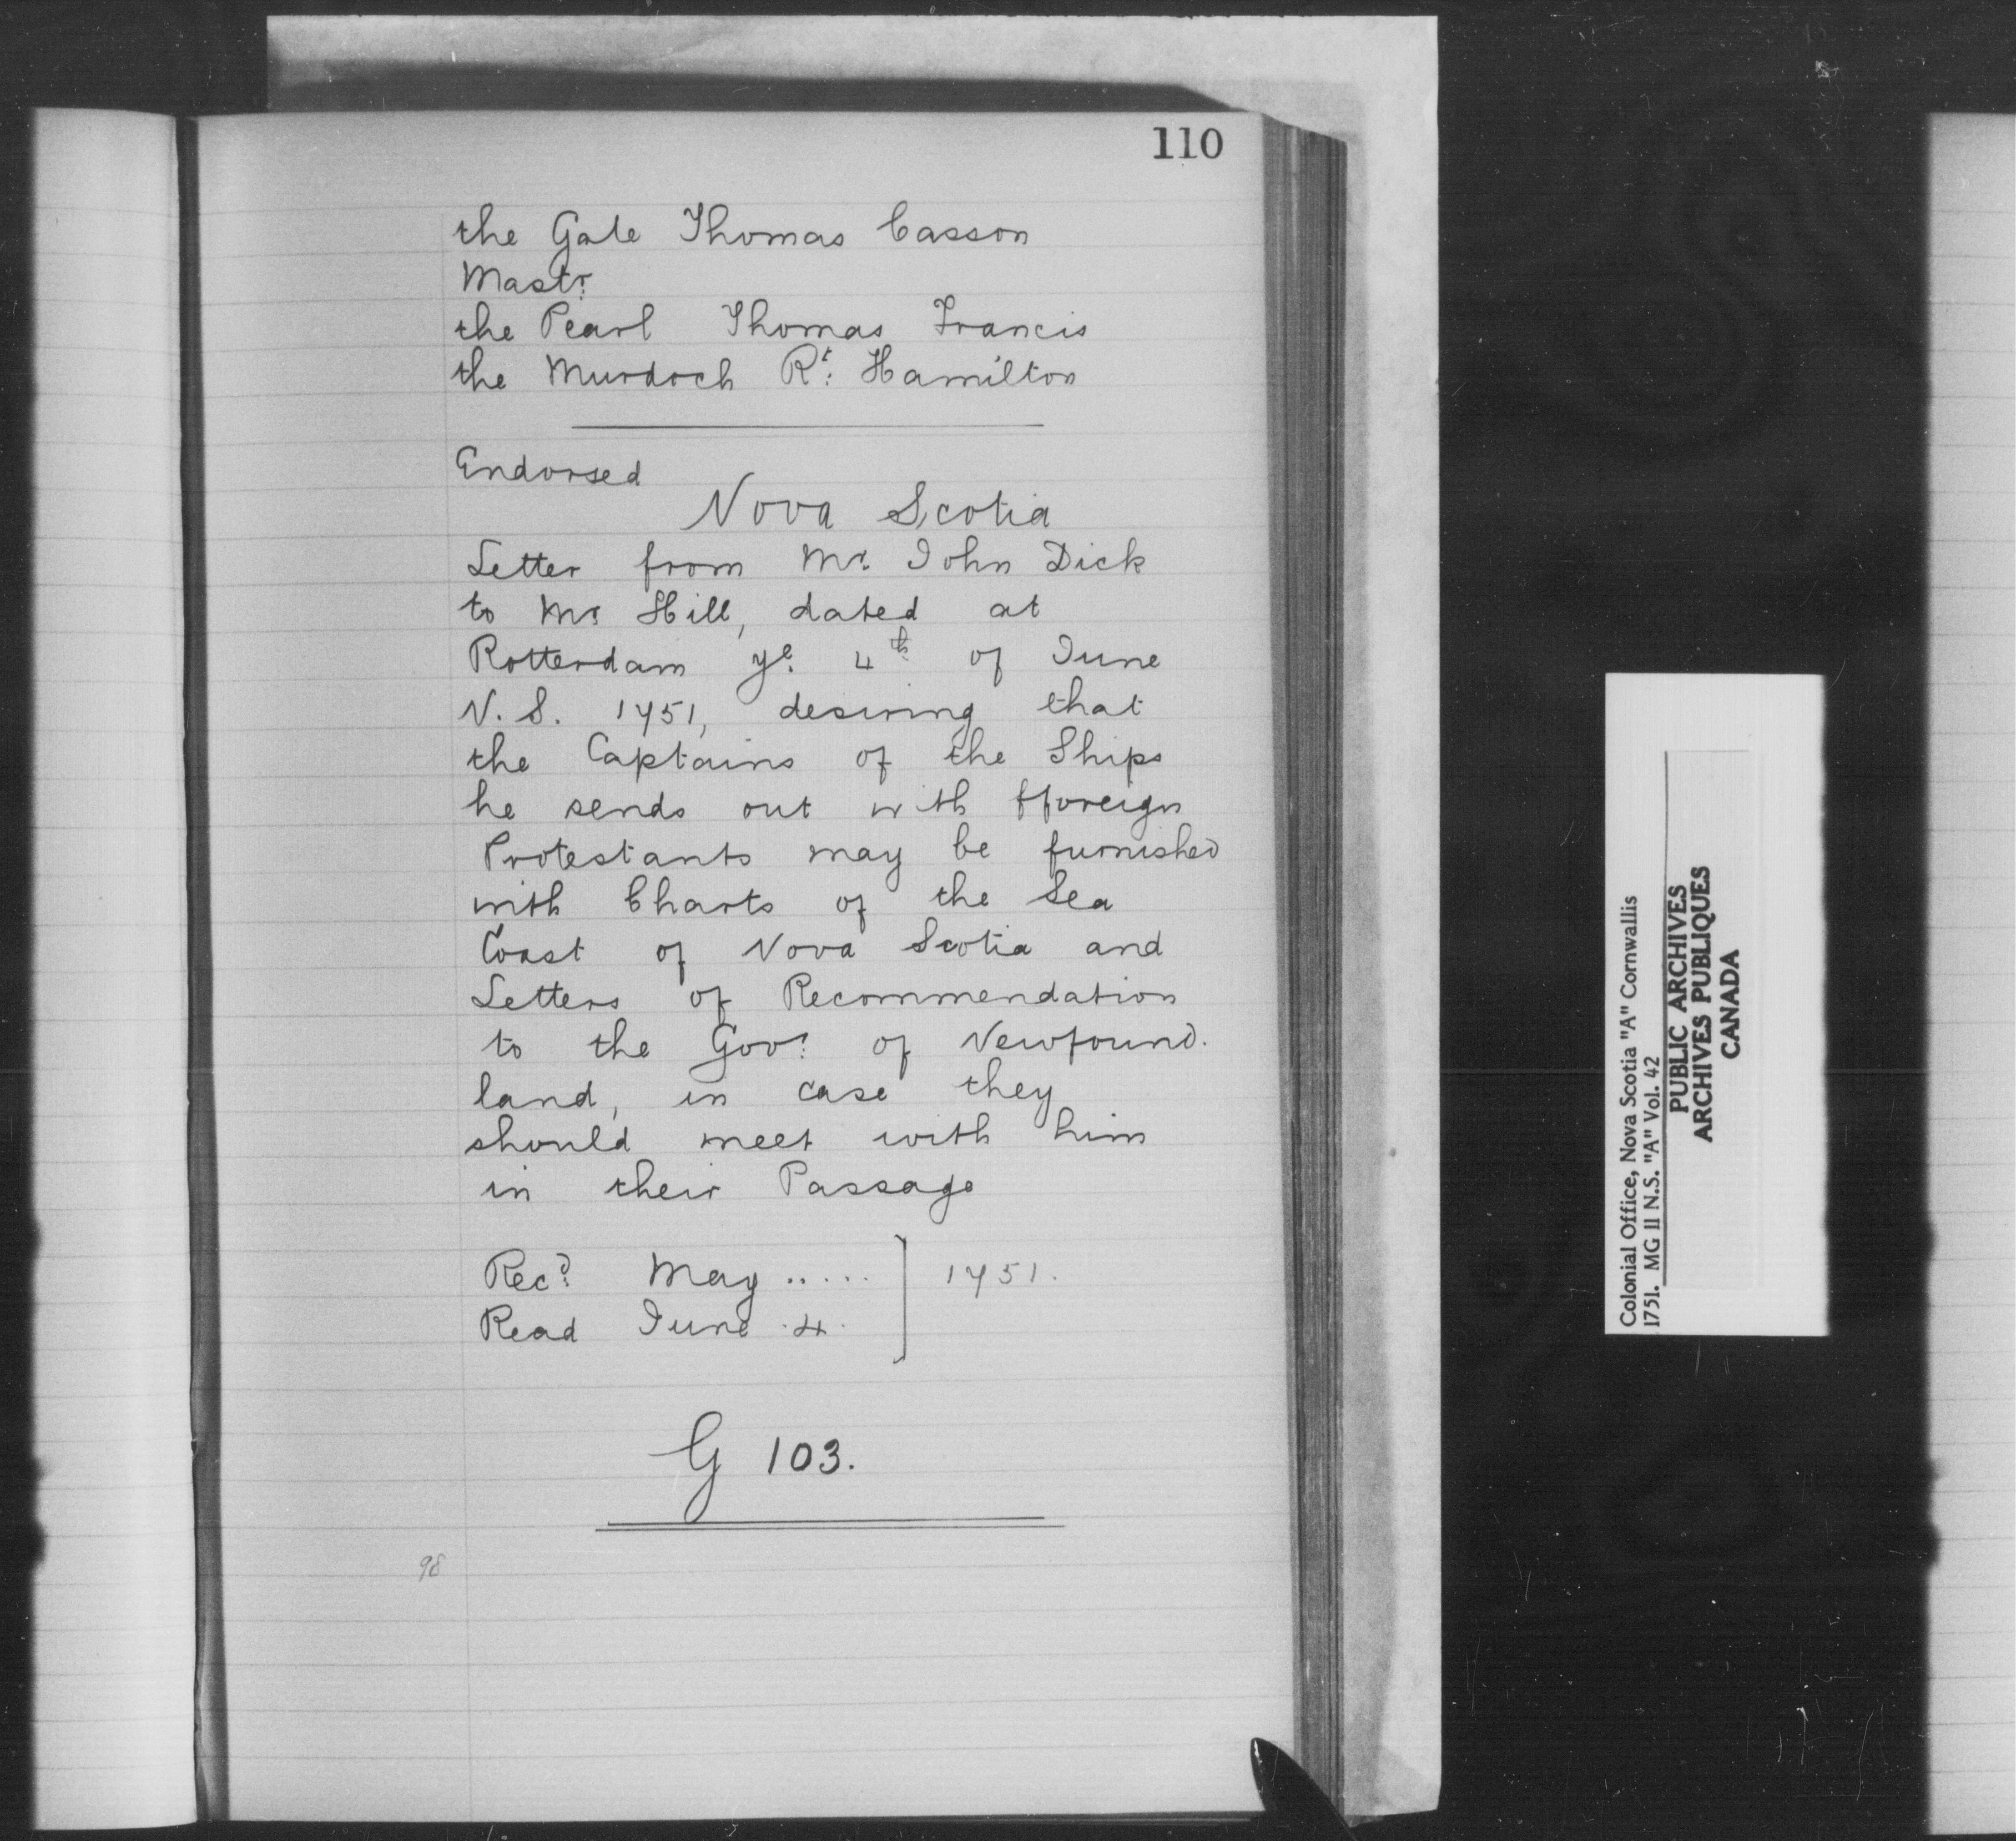 110
the Gale Thomas Casson
Mastr.
the Pearl Thomas Francis
the Murdoch Rt. Hamilton
Endorsed
Nova Scotia
Letter from Mr. John Dick
to Mr Hill, dated at
Rotterdam ye. 4th of June
N.S. 1751, desiring that
the Captains of the Ships
he sends out with fforeign
Protestants may be furnished
with Charts of the Sea
Coast of Nova Scotia and
Letters of Recommendation
to the Govr. of Newfound.
land, in case they
should meet with him
in their Passage
Recd. May ..... ] 1751.
Read June .4.
G 103.
98
Colonial Office, Nova Scotia "A" Cornwallis
1751. MG II N.S. "A" Vol. 42
PUBLIC ARCHIVES
ARCHIVES PUBLIQUES
CANADA